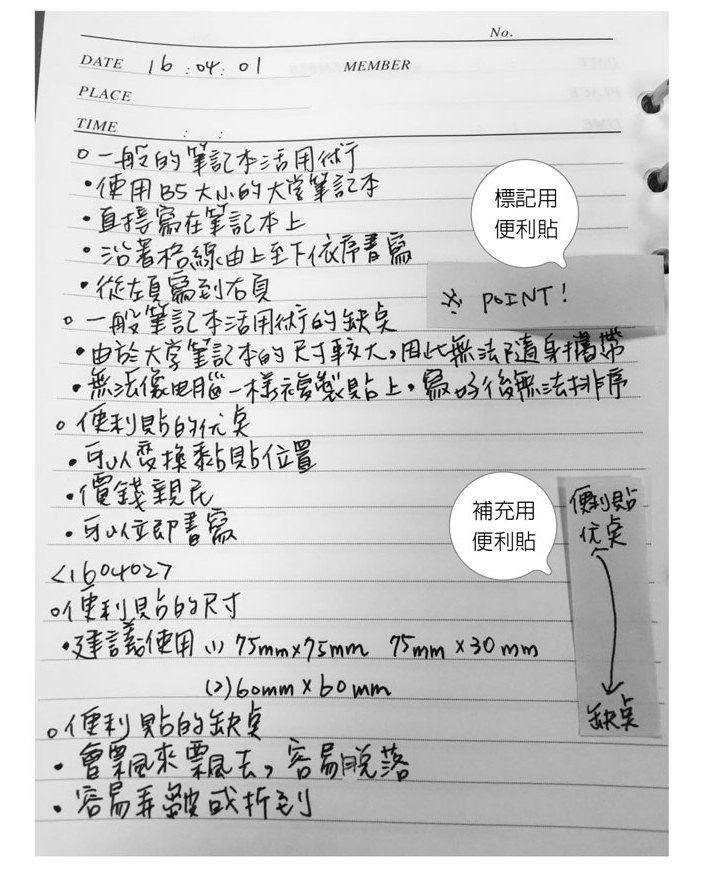 No.
DATE 16 : 04 : 01 MEMBER
PLACE
TIME : :
○一般的筆記本活用術
・使用B5大小的大学筆記本
・直接寫在筆記本上
・沿著格線由上至下依序書寫
・從左頁寫到右頁
○一般筆記本活用術的缺点
・由於大学筆記本的尺寸較大，因此無法隨身攜帶
・無法像电腦一樣複製貼上，寫好後無法排序
○便利貼的优点
・可以變換黏貼位置
・價錢親民
・可以立即書寫
<160402>
○便利貼的尺寸
・建議使用(1) 75mm×75mm 75mm×30mm
(2)60mm×60mm
○便利貼的缺点
・會飄來飄去，容易脫落
・容易弄皺或折到
標記用
便利貼
※ POINT!
補充用
便利貼
便利貼
优点
缺点